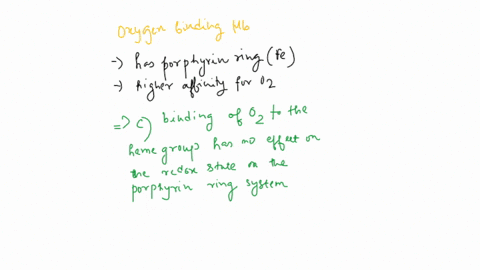 Oxygen binding Mb
-) has porphyrin ring (Fe)
-) higher affinity for O2
=> c) binding of O2 to the
heme group has no effect on
the redox state on the
porphyrin ring system